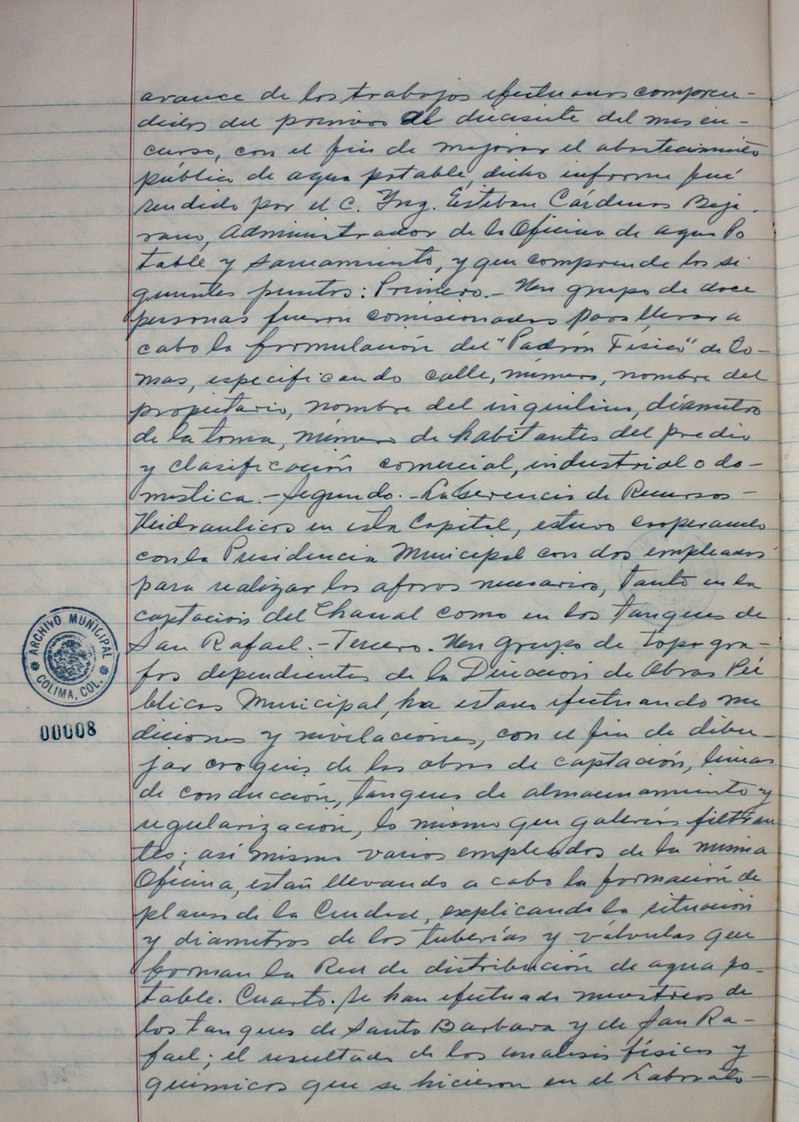 avance de los trabajos efectuados compren-
didos del primero al diecisiete del mes en-
curso, con el fin de mejorar el abastecimiento
público de agua potable, dicho informe fué
rendido por el C. Ing. Esteban Cárdenas Beja-
rano, Administrador de la Oficina de agua Po
table y Saneamiento, y que comprende los si
guientes puntos: Primero.- Un grupo de doce
personas fueron comisionadas para llevar a
cabo la formulación del "Padrón Físico" de to-
mas, especificando calle, número, nombre del
propietario, nombre del inquilino, diámetro
de la toma, número de habitantes del predio
y clasificación comercial, industrial o do-
mestica.- Segundo.- La Gerencia de Recursos-
Hidraulicos en esta Capital, estuvo cooperando
con la Presidencia Municipal con dos empleados
para realizar los aforos necesarios, tanto en la
captación del Chanal como en los tanques de
San Rafael.- Tercero. Un grupo de topogra-
fos dependientes de la Dirección de Obras Pú
blicas Municipal, ha estado efectuando me
diciones y nivelaciones, con el fin de dibu-
jar croquis de las obras de captación, lineas
de conducción, tanques de almacenamiento y
regularización, lo mismo que galerías filtran
tes; así mismo varios empleados de la misma
Oficina, están llevando a cabo la formación de
planos de la Ciudad, explicando la situación
y diametros de las tuberías y válvulas que
forman la Red de distribución de agua po-
table. Cuarto. Se han efectuado muestreos de
los tanques de Santa Barbara y de San Ra-
fael; el resultado de los analisis físicos y
químicos que se hicieron en el Laborato-
ARCHIVO MUNICIPAL
COLIMA, COL.
00008